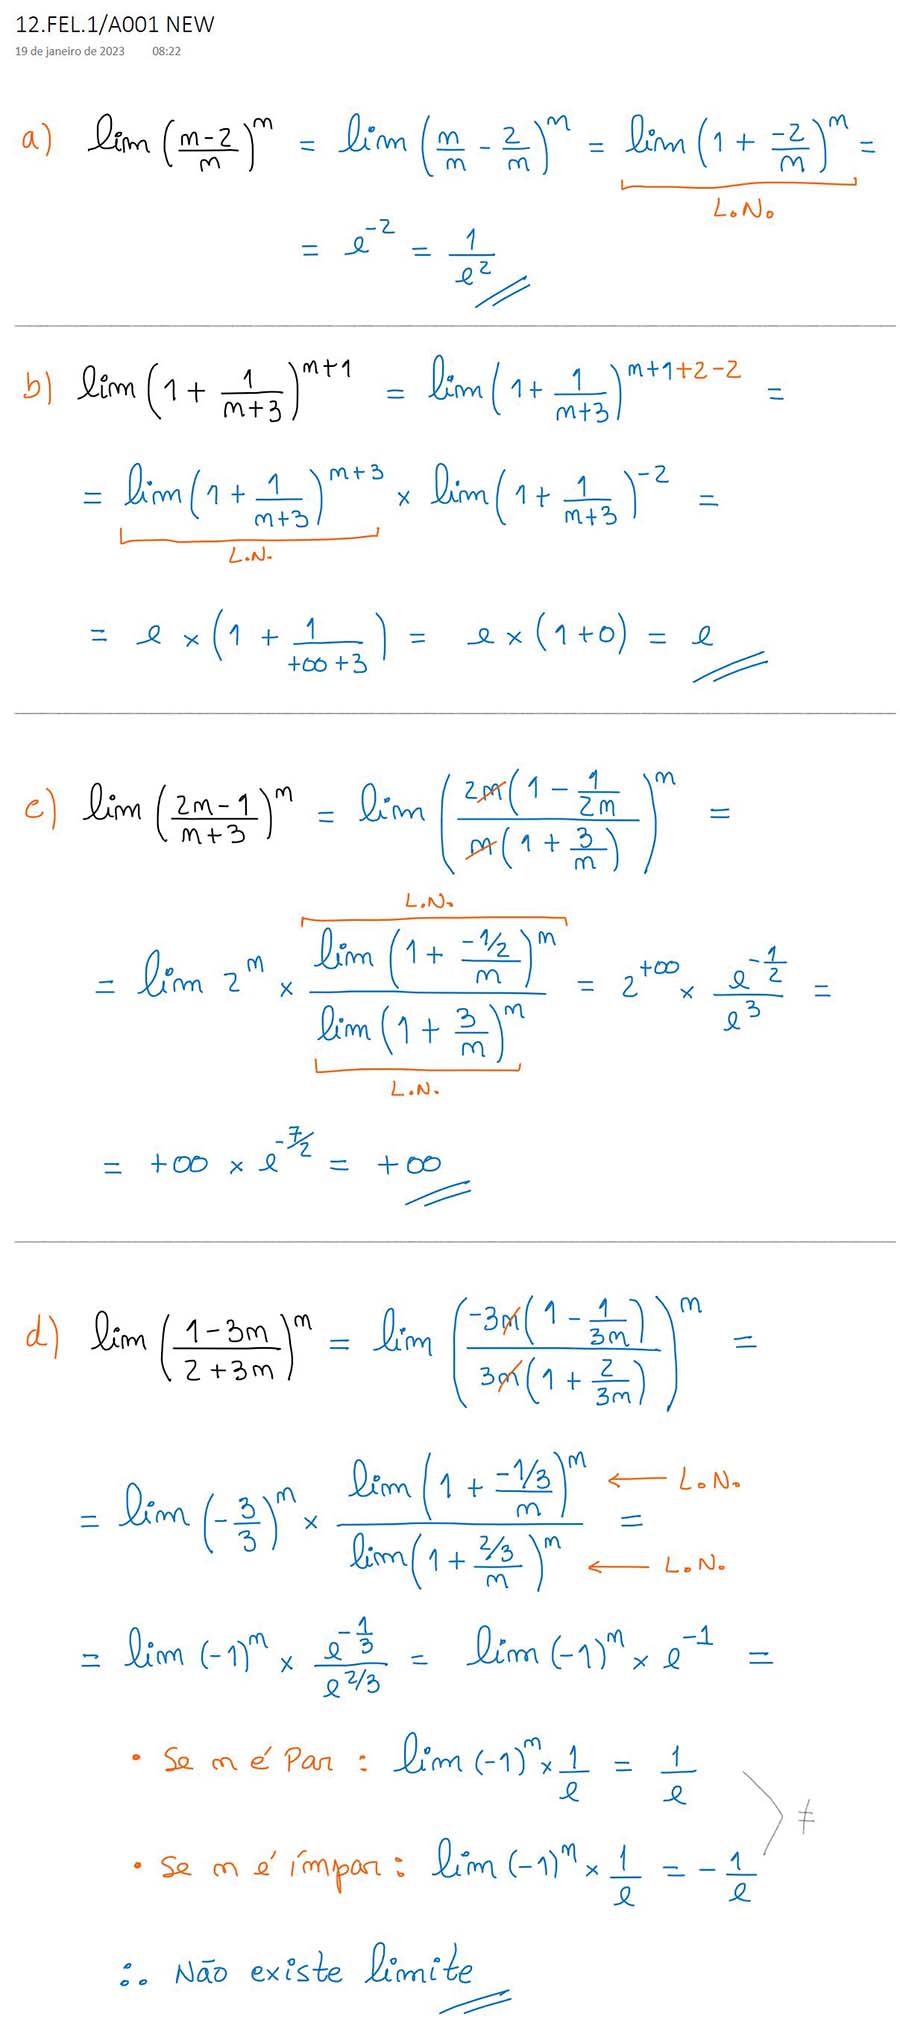 12.FEL.1/A001 NEW
19 de janeiro de 2023 08:22
a) lim ((n-2)/n)^n = lim (n/n - 2/n)^n = lim (1 + (-2)/n)^n =
L.N.
= e^(-2) = 1/e^2
b) lim (1 + 1/(n+3))^(n+1) = lim (1 + 1/(n+3))^(n+1+2-2) =
= lim (1 + 1/(n+3))^(n+3) × lim (1 + 1/(n+3))^(-2) =
L.N.
= e × (1 + 1/(+∞+3)) = e × (1+0) = e
c) lim ((2n-1)/(n+3))^n = lim ((2n(1 - 1/(2n)))/(n(1 + 3/n)))^n =
L.N.
= lim 2^n × (lim (1 + (-1/2)/n)^n)/(lim (1 + 3/n)^n) = 2^(+∞) × e^(-1/2)/e^3 =
L.N.
= +∞ × e^(-7/2) = +∞
d) lim ((1-3n)/(2+3n))^n = lim ((-3n(1 - 1/(3n)))/(3n(1 + 2/(3n))))^n =
= lim (-3/3)^n × (lim (1 + (-1/3)/n)^n)/(lim (1 + (2/3)/n)^n) =
← L.N.
← L.N.
= lim (-1)^n × e^(-1/3)/e^(2/3) = lim (-1)^n × e^(-1) =
• Se n é Par : lim (-1)^n × 1/e = 1/e
≠
• Se n é ímpar : lim (-1)^n × 1/e = -1/e
∴ Não existe limite